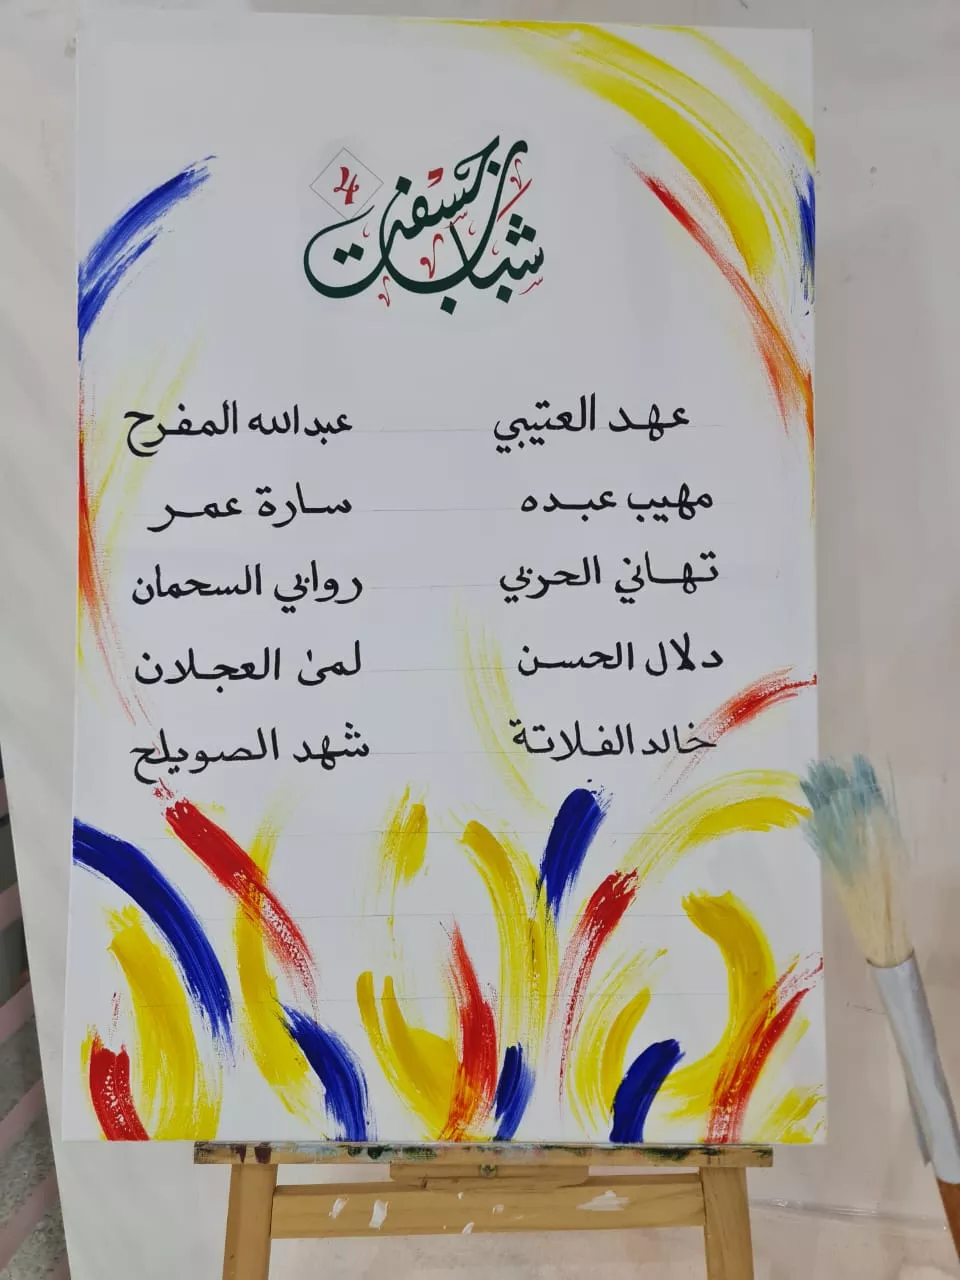 شباب
4
عهد العتيبي
عبدالله المفرح
مهيب عبده
سارة عمر
تهاني الحربي
روابي السحمان
دلال الحسن
لمى العجلان
خالد الفلاتة
شهد الصويلح